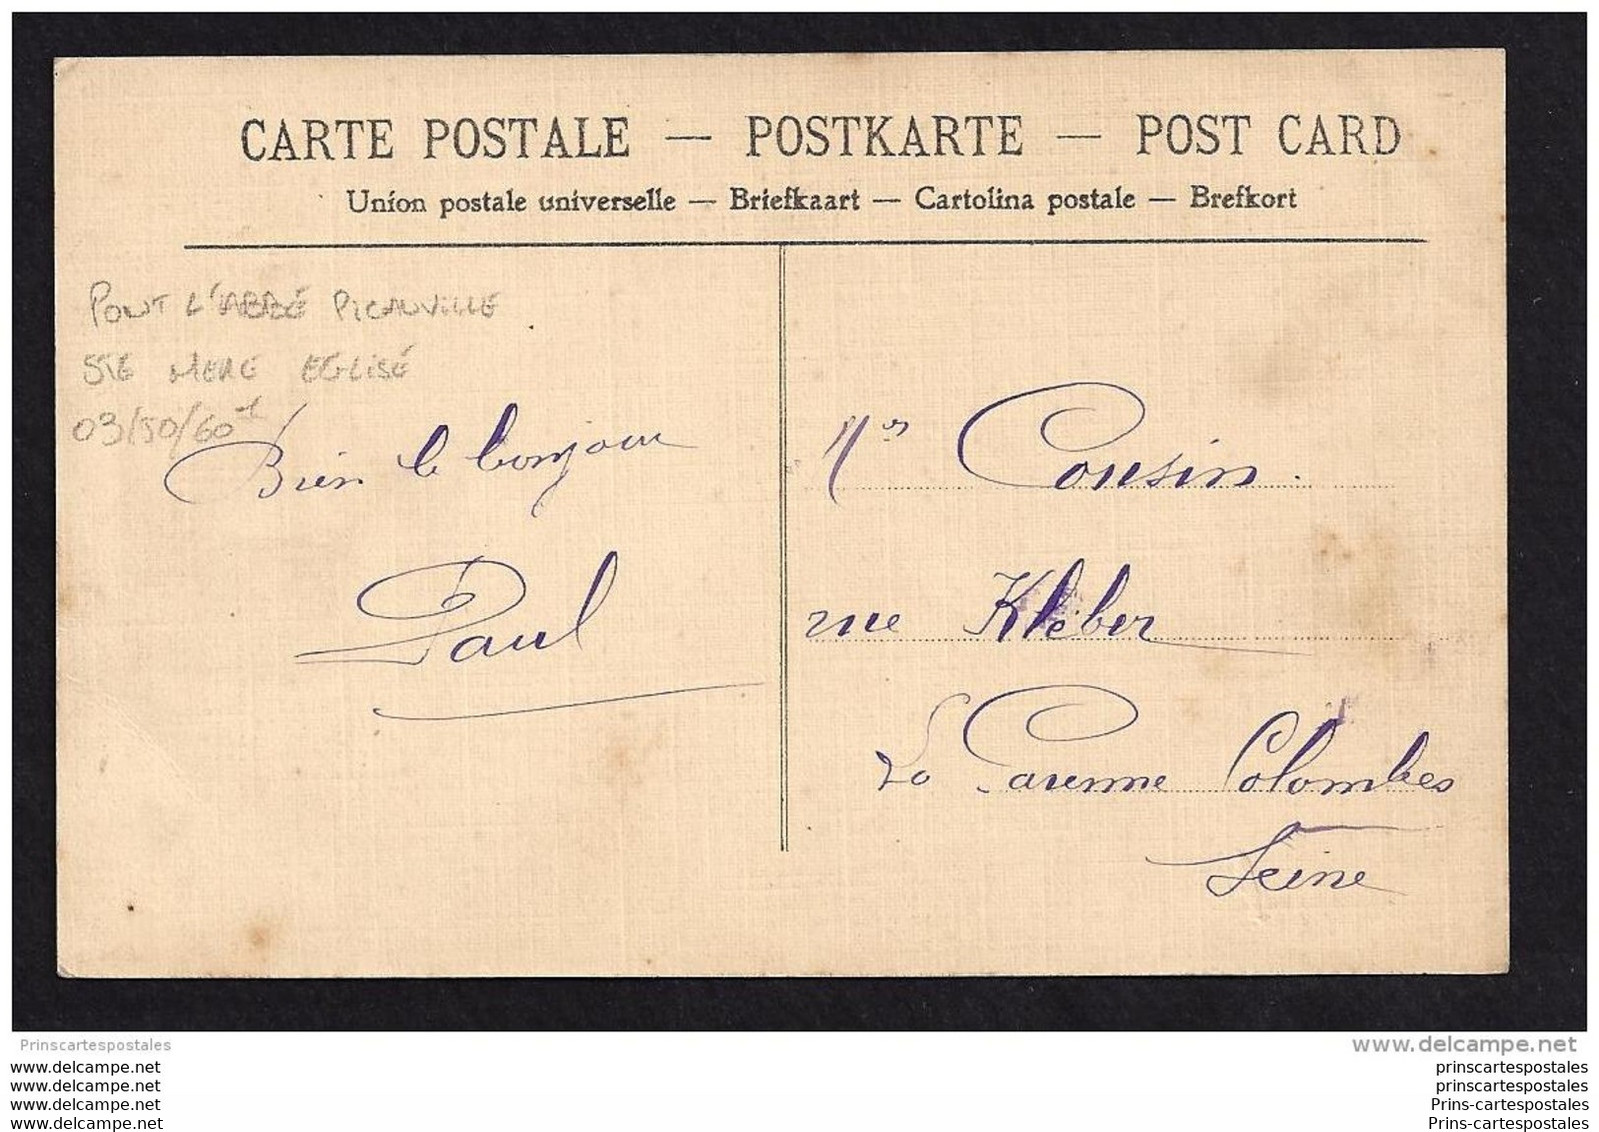 CARTE POSTALE — POSTKARTE — POST CARD
Union postale universelle — Briefkaart — Cartolina postale — Brefkort
PONT L'ABBÉ PICAUVILLE
STE MERE EGLISE
03/50/60-1
Bien le bonjour
Paul
Mr Cousin.
rue Kléber
La Garenne Colombes
Seine
Prinscartespostales
www.delcampe.net
www.delcampe.net
www.delcampe.net
www.delcampe.net
www.delcampe.net
prinscartespostales
prinscartespostales
Prins-cartespostales
Prins-cartespostales